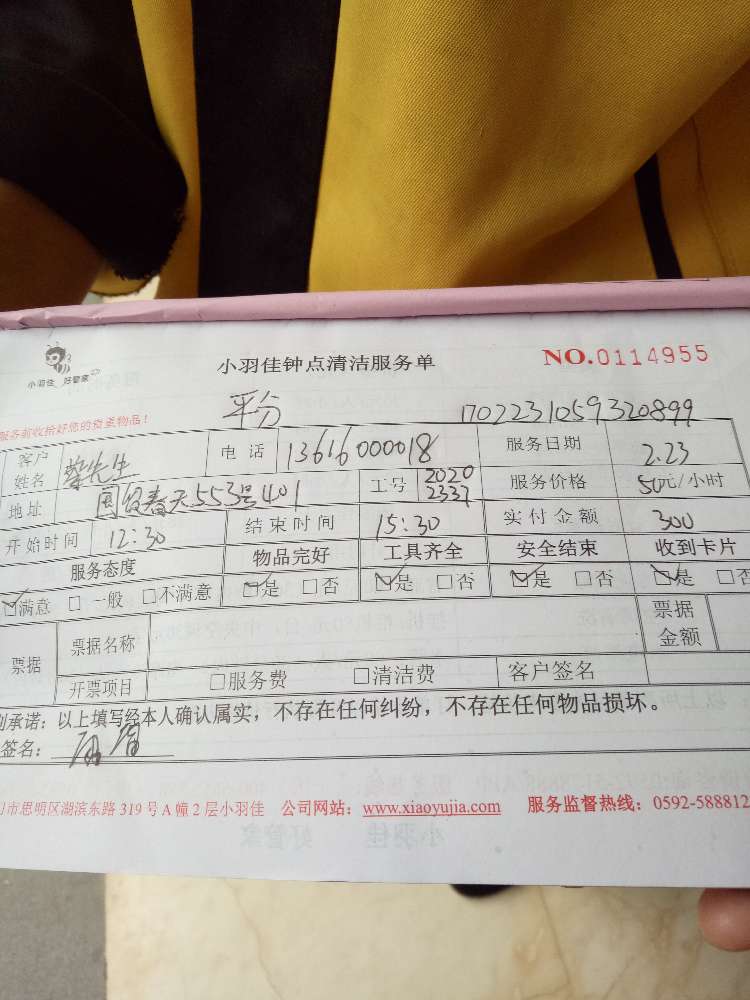 小羽佳 好管家
小羽佳钟点清洁服务单 NO.0114955
服务前收拾好您的贵重物品!
平分 1702231059320899
客户姓名 先生 电话 13616000018 服务日期 2.23
地址 国贸春天553号401 工号 2020 2337 服务价格 50元/小时
开始时间 12:30 结束时间 15:30 实付金额 300
服务态度 物品完好 工具齐全 安全结束 收到卡片
☑满意 □一般 □不满意 ☑是 □否 ☑是 □否 ☑是 □否 ☑是 □否
票据 票据名称 票据金额
开票项目 □服务费 □清洁费 客户签名
承诺:以上填写经本人确认属实,不存在任何纠纷,不存在任何物品损坏。
签名:
市思明区湖滨东路 319 号 A 幢 2 层小羽佳 公司网站:www.xiaoyujia.com 服务监督热线:0592-588812